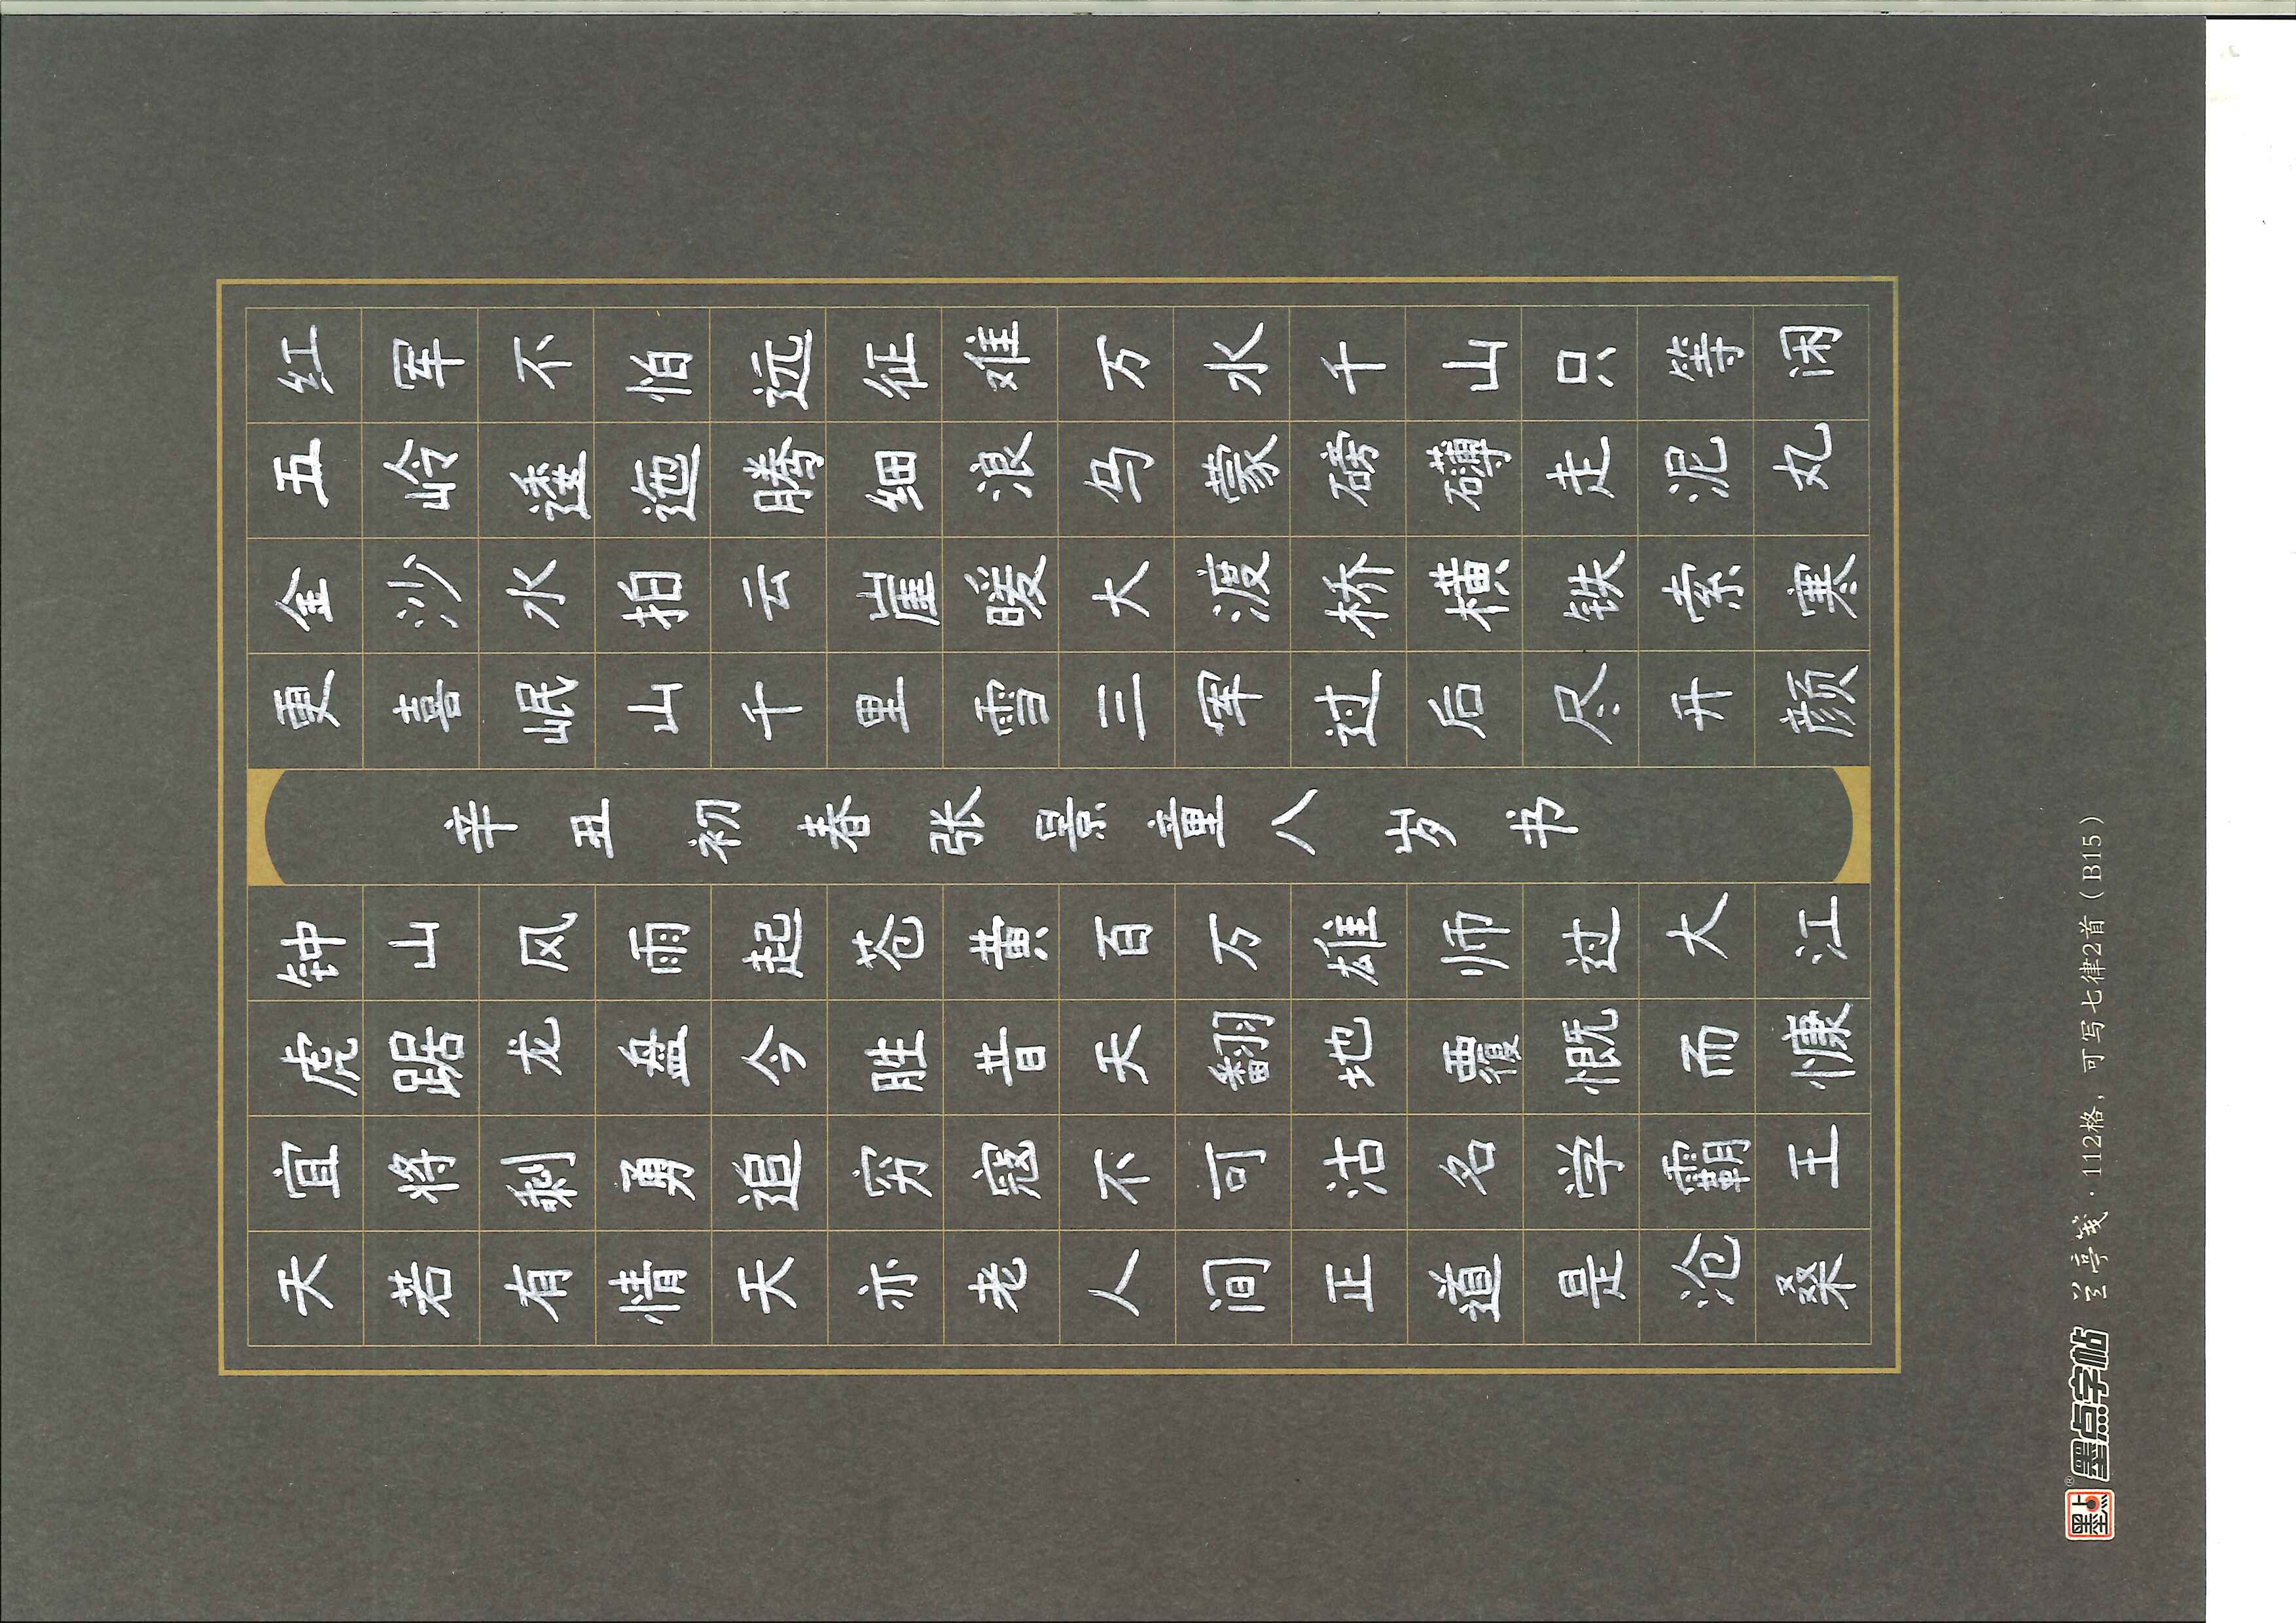 红军不怕远征难万水千山只等闲
五岭逶迤腾细浪乌蒙磅礴走泥丸
金沙水拍云崖暖大渡桥横铁索寒
更喜岷山千里雪三军过后尽开颜
辛丑初春张景童八岁书
钟山风雨起苍黄百万雄师过大江
虎踞龙盘今胜昔天翻地覆慨而慷
宜将剩勇追穷寇不可沽名学霸王
天若有情天亦老人间正道是沧桑
墨点® 墨点字帖 兰亭笺·112格，可写七律2首（B15）